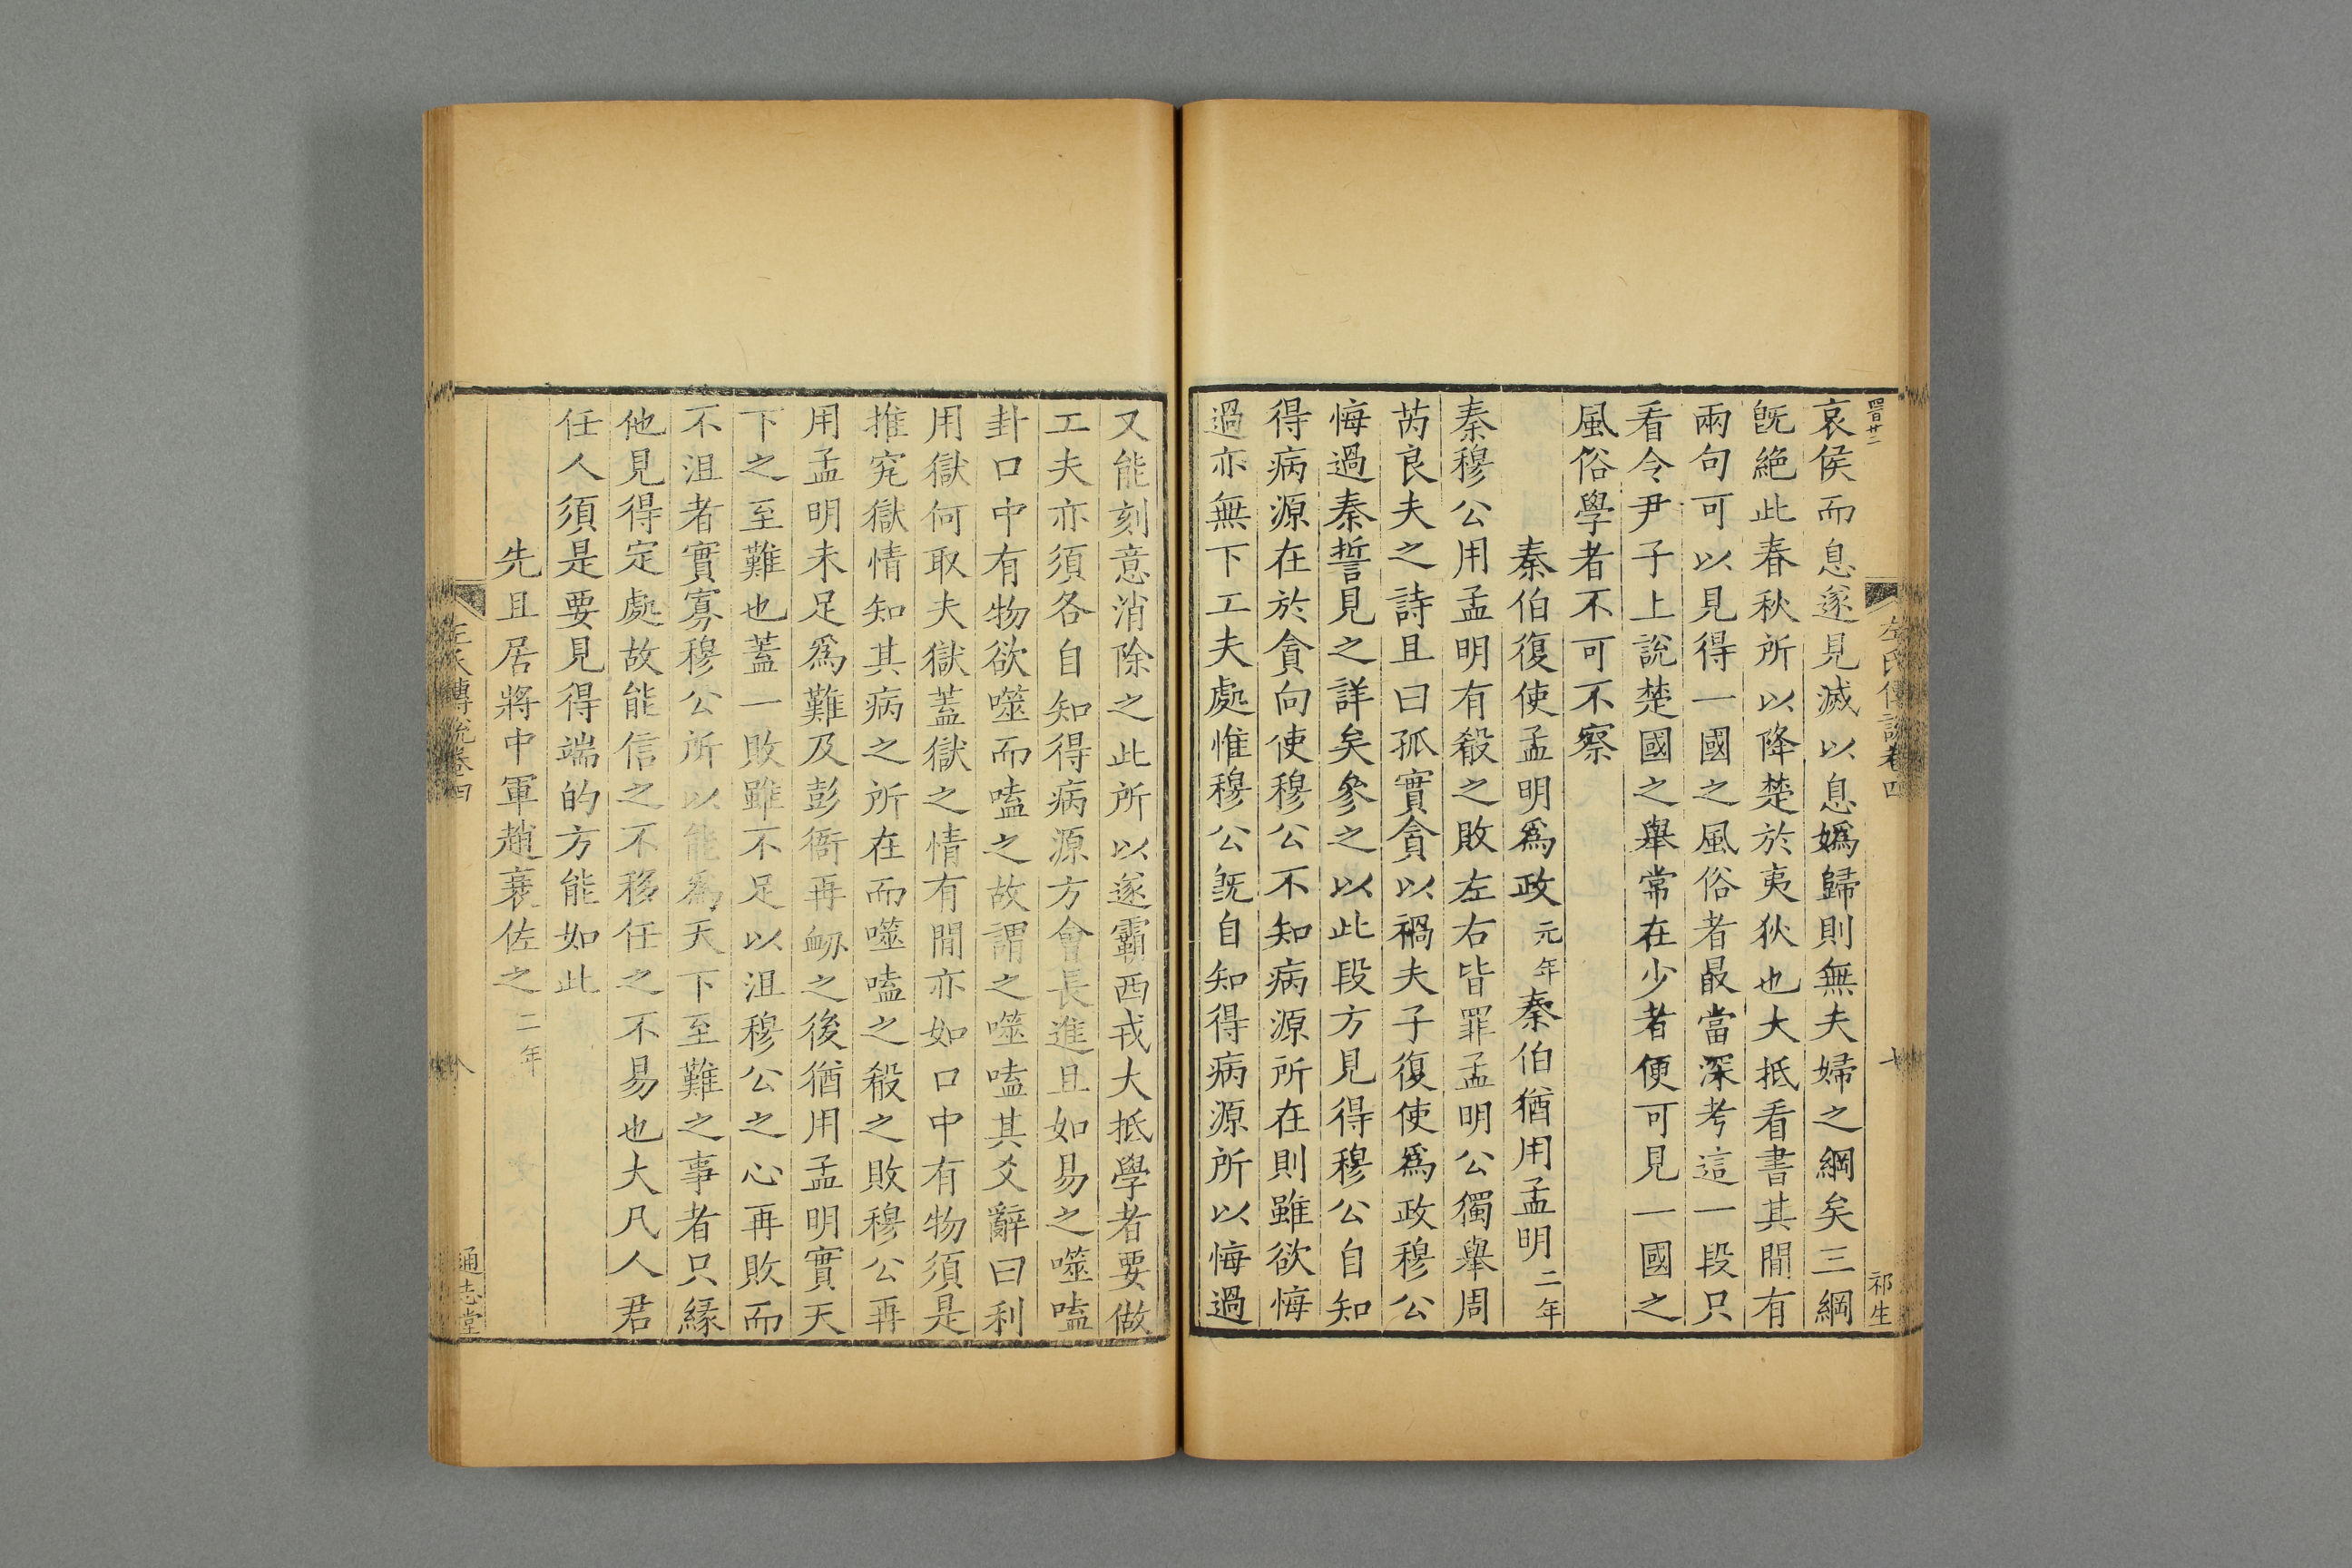 四百廿二
左氏傳說卷四
十
祁生
哀侯而息遂見滅以息嬀歸則無夫婦之綱矣三綱
旣絕此春秋所以降楚於夷狄也大抵看書其閒有
兩句可以見得一國之風俗者最當深考這一段只
看令尹子上說楚國之舉常在少者便可見一國之
風俗學者不可不察
秦伯復使孟明爲政元年秦伯猶用孟明二年
秦穆公用孟明有殽之敗左右皆罪孟明公獨舉周
芮良夫之詩且曰孤實貪以禍夫子復使爲政穆公
悔過秦誓見之詳矣參之以此段方見得穆公自知
得病源在於貪向使穆公不知病源所在則雖欲悔
過亦無下工夫處惟穆公旣自知得病源所以悔過
又能刻意消除之此所以遂霸西戎大抵學者要做
工夫亦須各自知得病源方會長進且如易之噬嗑
卦口中有物欲噬而嗑之故謂之噬嗑其爻辭曰利
用獄何取夫獄蓋獄之情有閒亦如口中有物須是
推究獄情知其病之所在而噬嗑之殽之敗穆公再
用孟明未足爲難及彭衙再衂之後猶用孟明實天
下之至難也蓋一敗雖不足以沮穆公之心再敗而
不沮者實寡穆公所以能爲天下至難之事者只緣
他見得定處故能信之不移任之不易也大凡人君
任人須是要見得端的方能如此
先且居將中軍趙衰佐之二年
左氏傳說卷四
通志堂